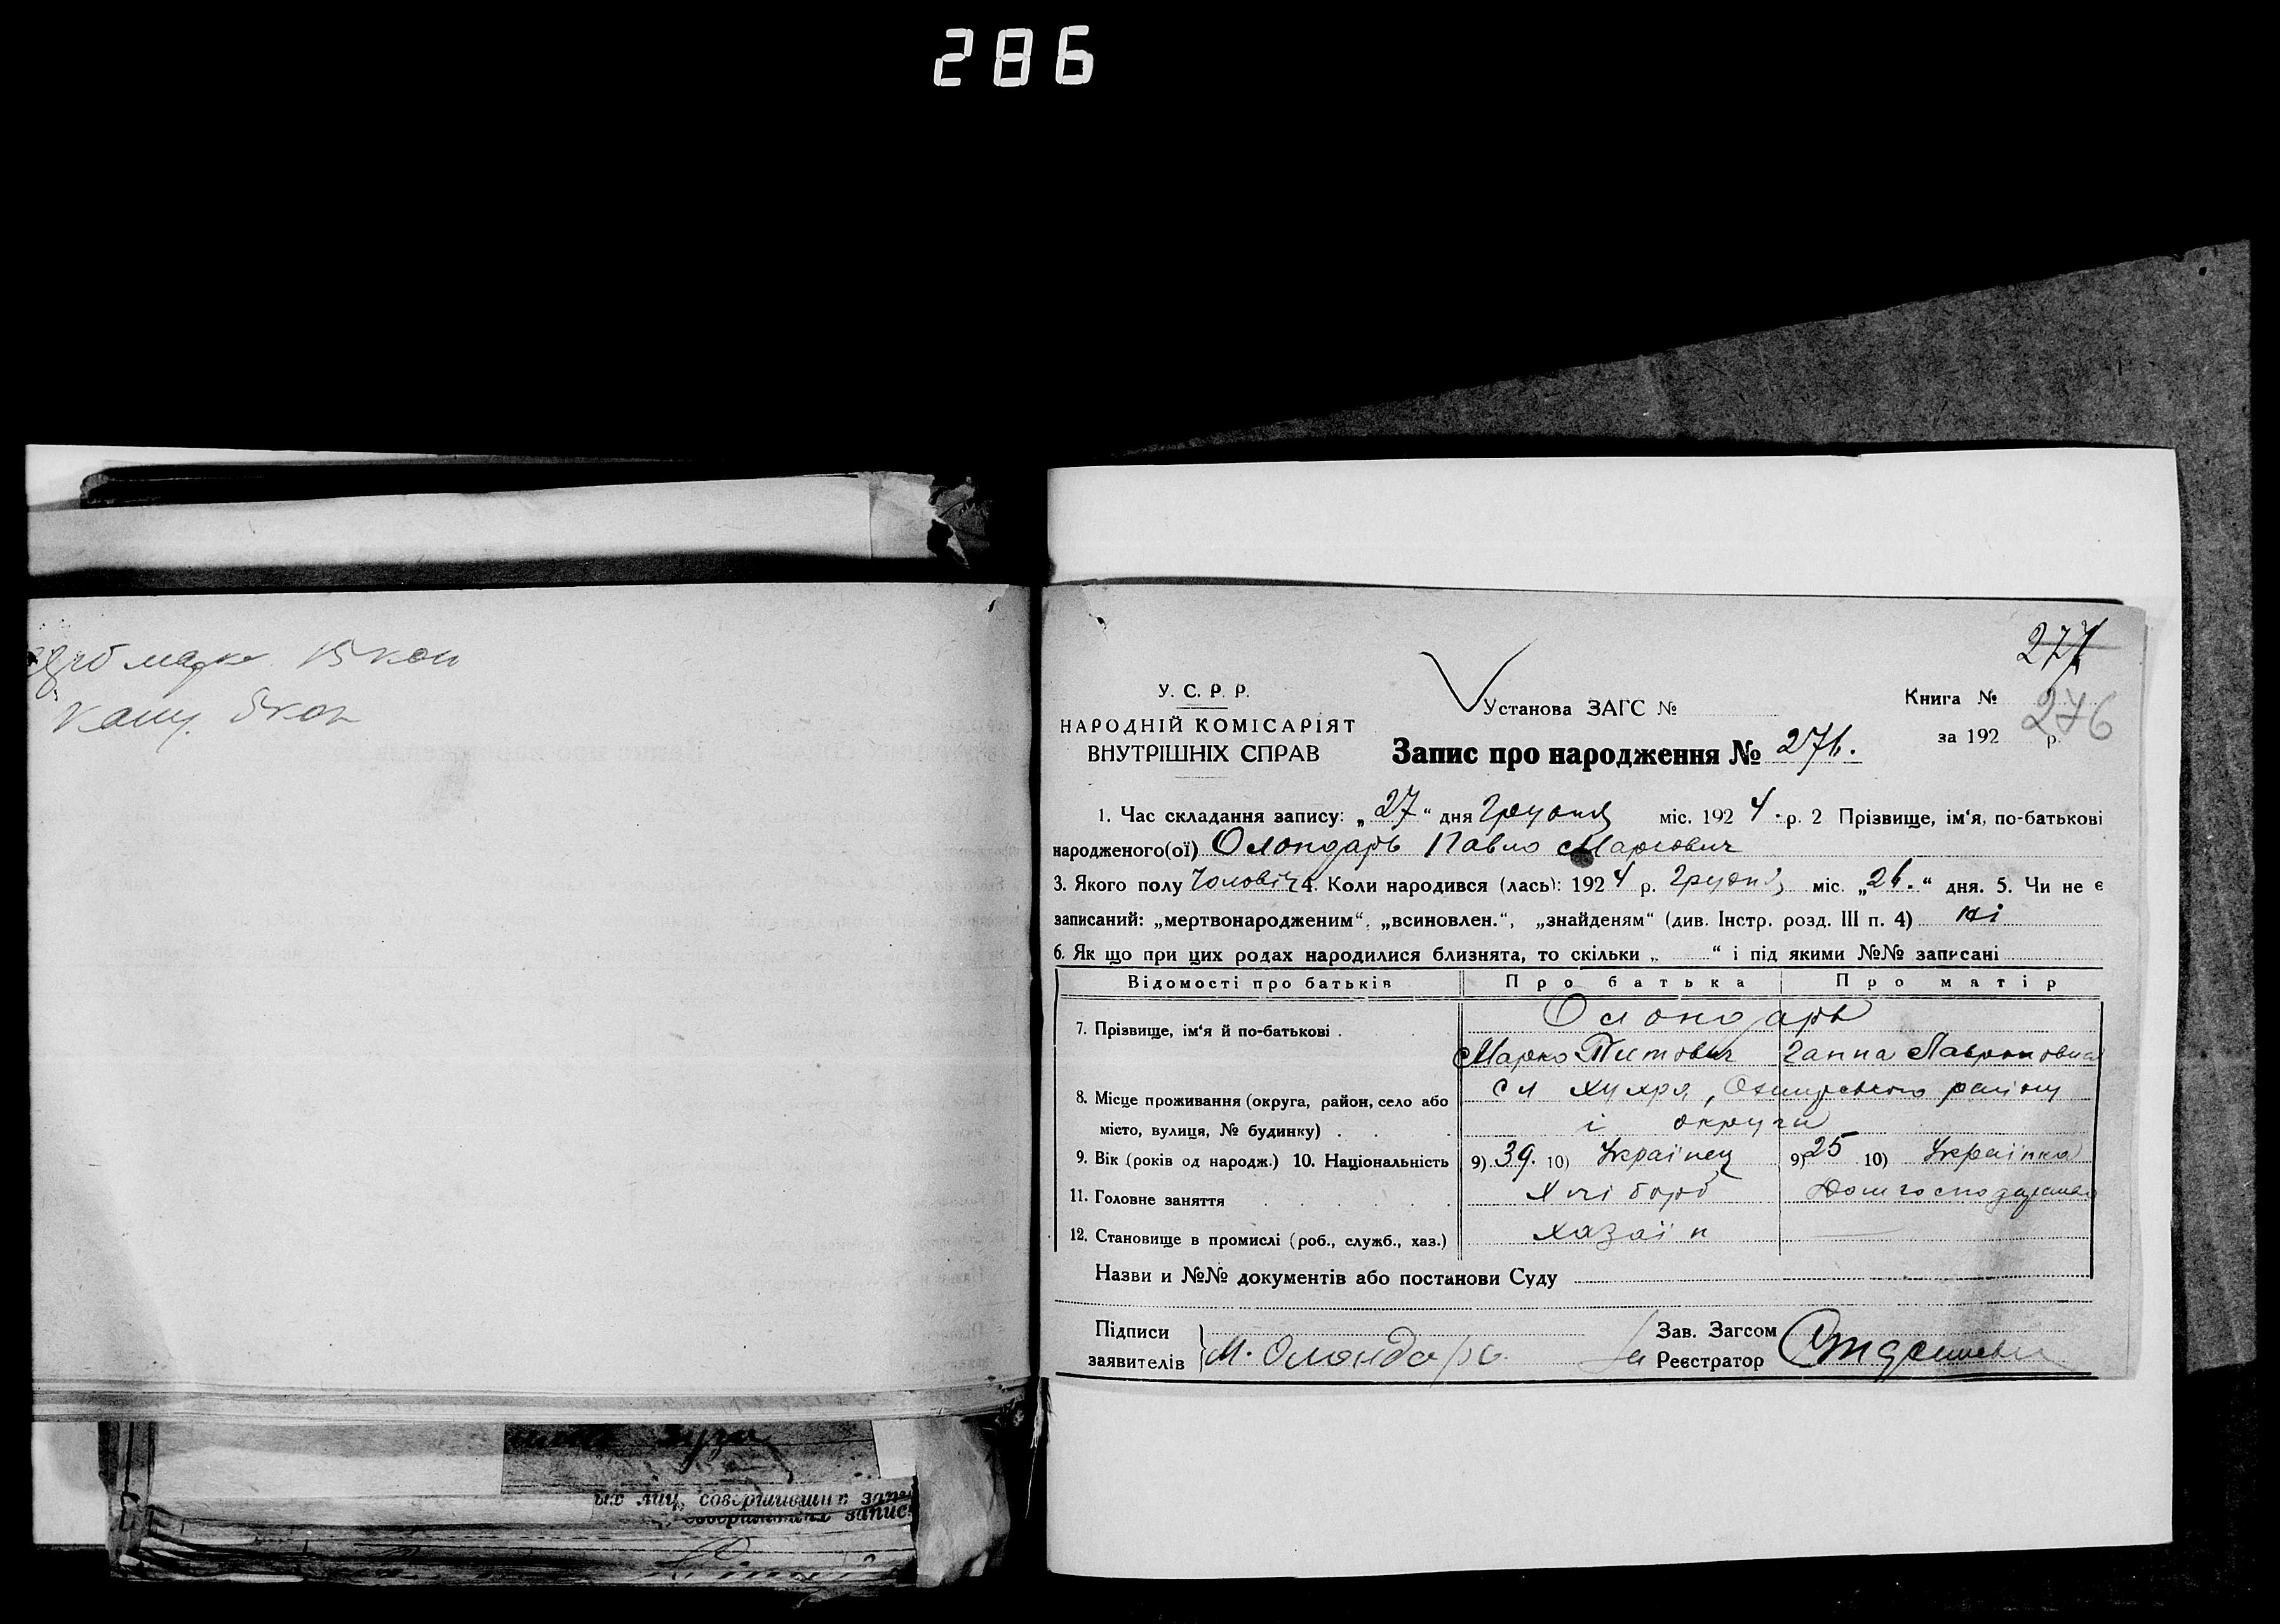 286
марк 15 коп
канц. 5 коп
277
276
У. С. Р. Р.
НАРОДНІЙ КОМІСАРІЯТ
ВНУТРІШНІХ СПРАВ
Установа ЗАГС №
Книга №
за 192 р.
Запис про народження № 276.
1. Час складання запису: „27“ дня Грудня міс. 1924 р. 2 Прізвище, ім‘я, по-батькові
народженого(ої) Олондарь Павло Маркович
3. Якого полу Чоловіч 4. Коли народився (лась): 1924 р. Грудня міс. „26.“ дня. 5. Чи не є
записаний: „мертвонародженим“, „всиновлен.“, „знайденям“ (див. Інстр. розд. III п. 4) ні
6. Як що при цих родах народилися близнята, то скільки „ “ і під якими №№ записані
Відомості про батьків Про батька Про матір
7. Прізвище, ім‘я й по-батькові . Олондарь
Марко Титович Ганна Лавроновна
8. Місце проживання (округа, район, село або
місто, вулиця, № будинку) . сл Хухря, Охтирського району
і округи
9. Вік (років од народж.) 10. Національність 9) 39. 10) Українец 9) 25 10) Українка
11. Головне заняття Хлібороб Домгосподарство
12. Становище в промислі (роб., служб., хаз.) хазяїн —
Назви и №№ документів або постанови Суду
Підписи
заявителів М. Олондарь
Зав. Загсом
за Реєстратор
ых лиц, совершивших запис
совершивших запис